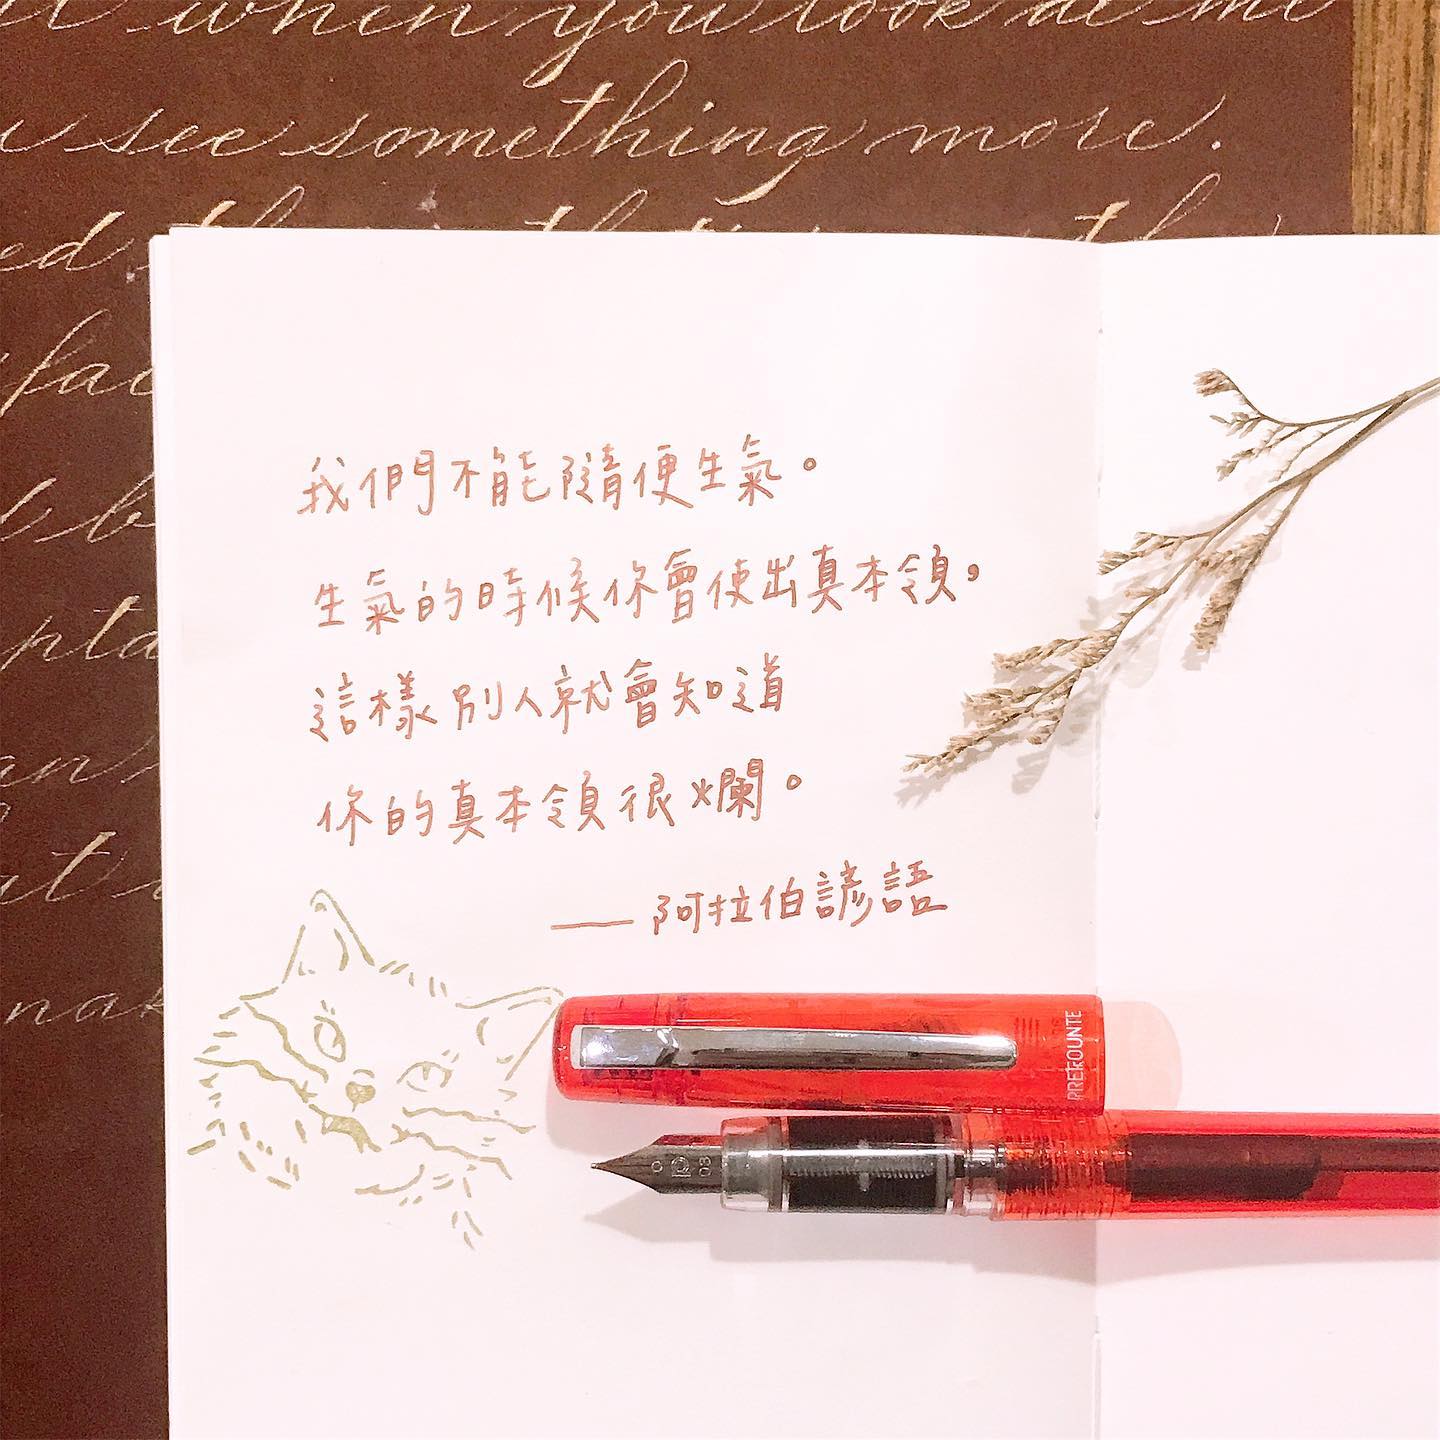 when you look at me
see something more.
我們不能隨便生氣。
生氣的時候你會使出真本領,
這樣別人就會知道
你的真本領很爛。
——阿拉伯諺語
PREFOUNTE